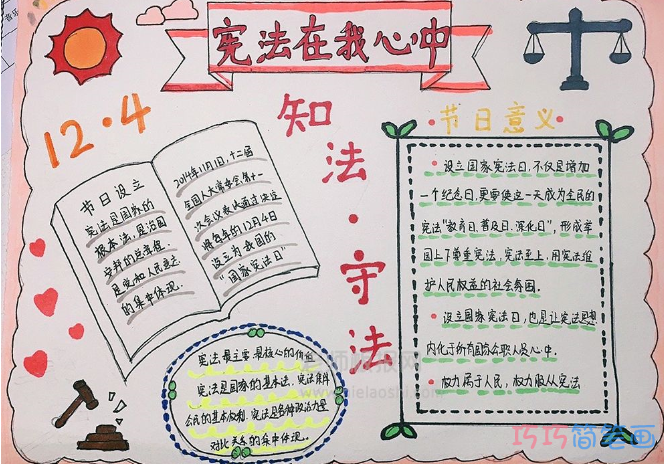 宪法在我心中
12·4
知法·守法
节日设立
宪法是国家的
根本法,是治国
安邦的总章程,
是党和人民意志
的集中体现.
2014年11月1日,十二届
全国人大常委会第十一
次会议表决通过决议
将每年的12月4日
设立为我国的
“国家宪法日”
·节日意义·
设立国家宪法日,不仅是增加
一个纪念日,更要使这一天成为全民的
宪法“教育日、普及日、深化日”,形成举
国上下尊重宪法、宪法至上、用宪法维
护人民权益的社会氛围.
设立国家宪法日,也是让宪法思想
内化于所有国家公职人员心中.
权力属于人民,权力服从宪法
宪法是主要是核心的
宪法是国家的基本法,宪法
公民的基本权利,宪法是各种政治力量
对比关系的集中体现.
巧巧简笔画